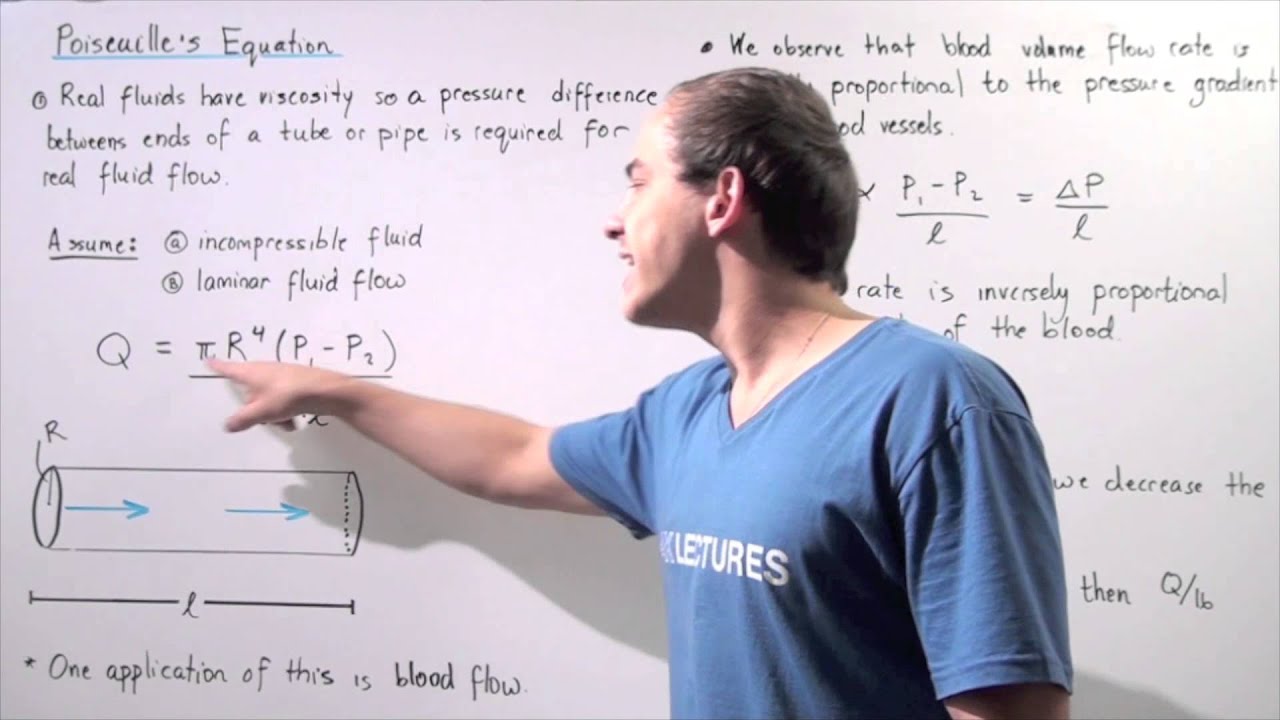 Poiseuille's Equation
① Real fluids have viscosity so a pressure difference
betweens ends of a tube or pipe is required for
real fluid flow.
Assume: ⓐ incompressible fluid
ⓑ laminar fluid flow
Q = πR⁴(P₁-P₂)
l
R
l
* One application of this is blood flow.
• We observe that blood volume flow rate is
proportional to the pressure gradient
vessels.
∝ P₁-P₂ / l = ΔP / l
rate is inversely proportional
of the blood.
we decrease the
then Q/16
LECTURES